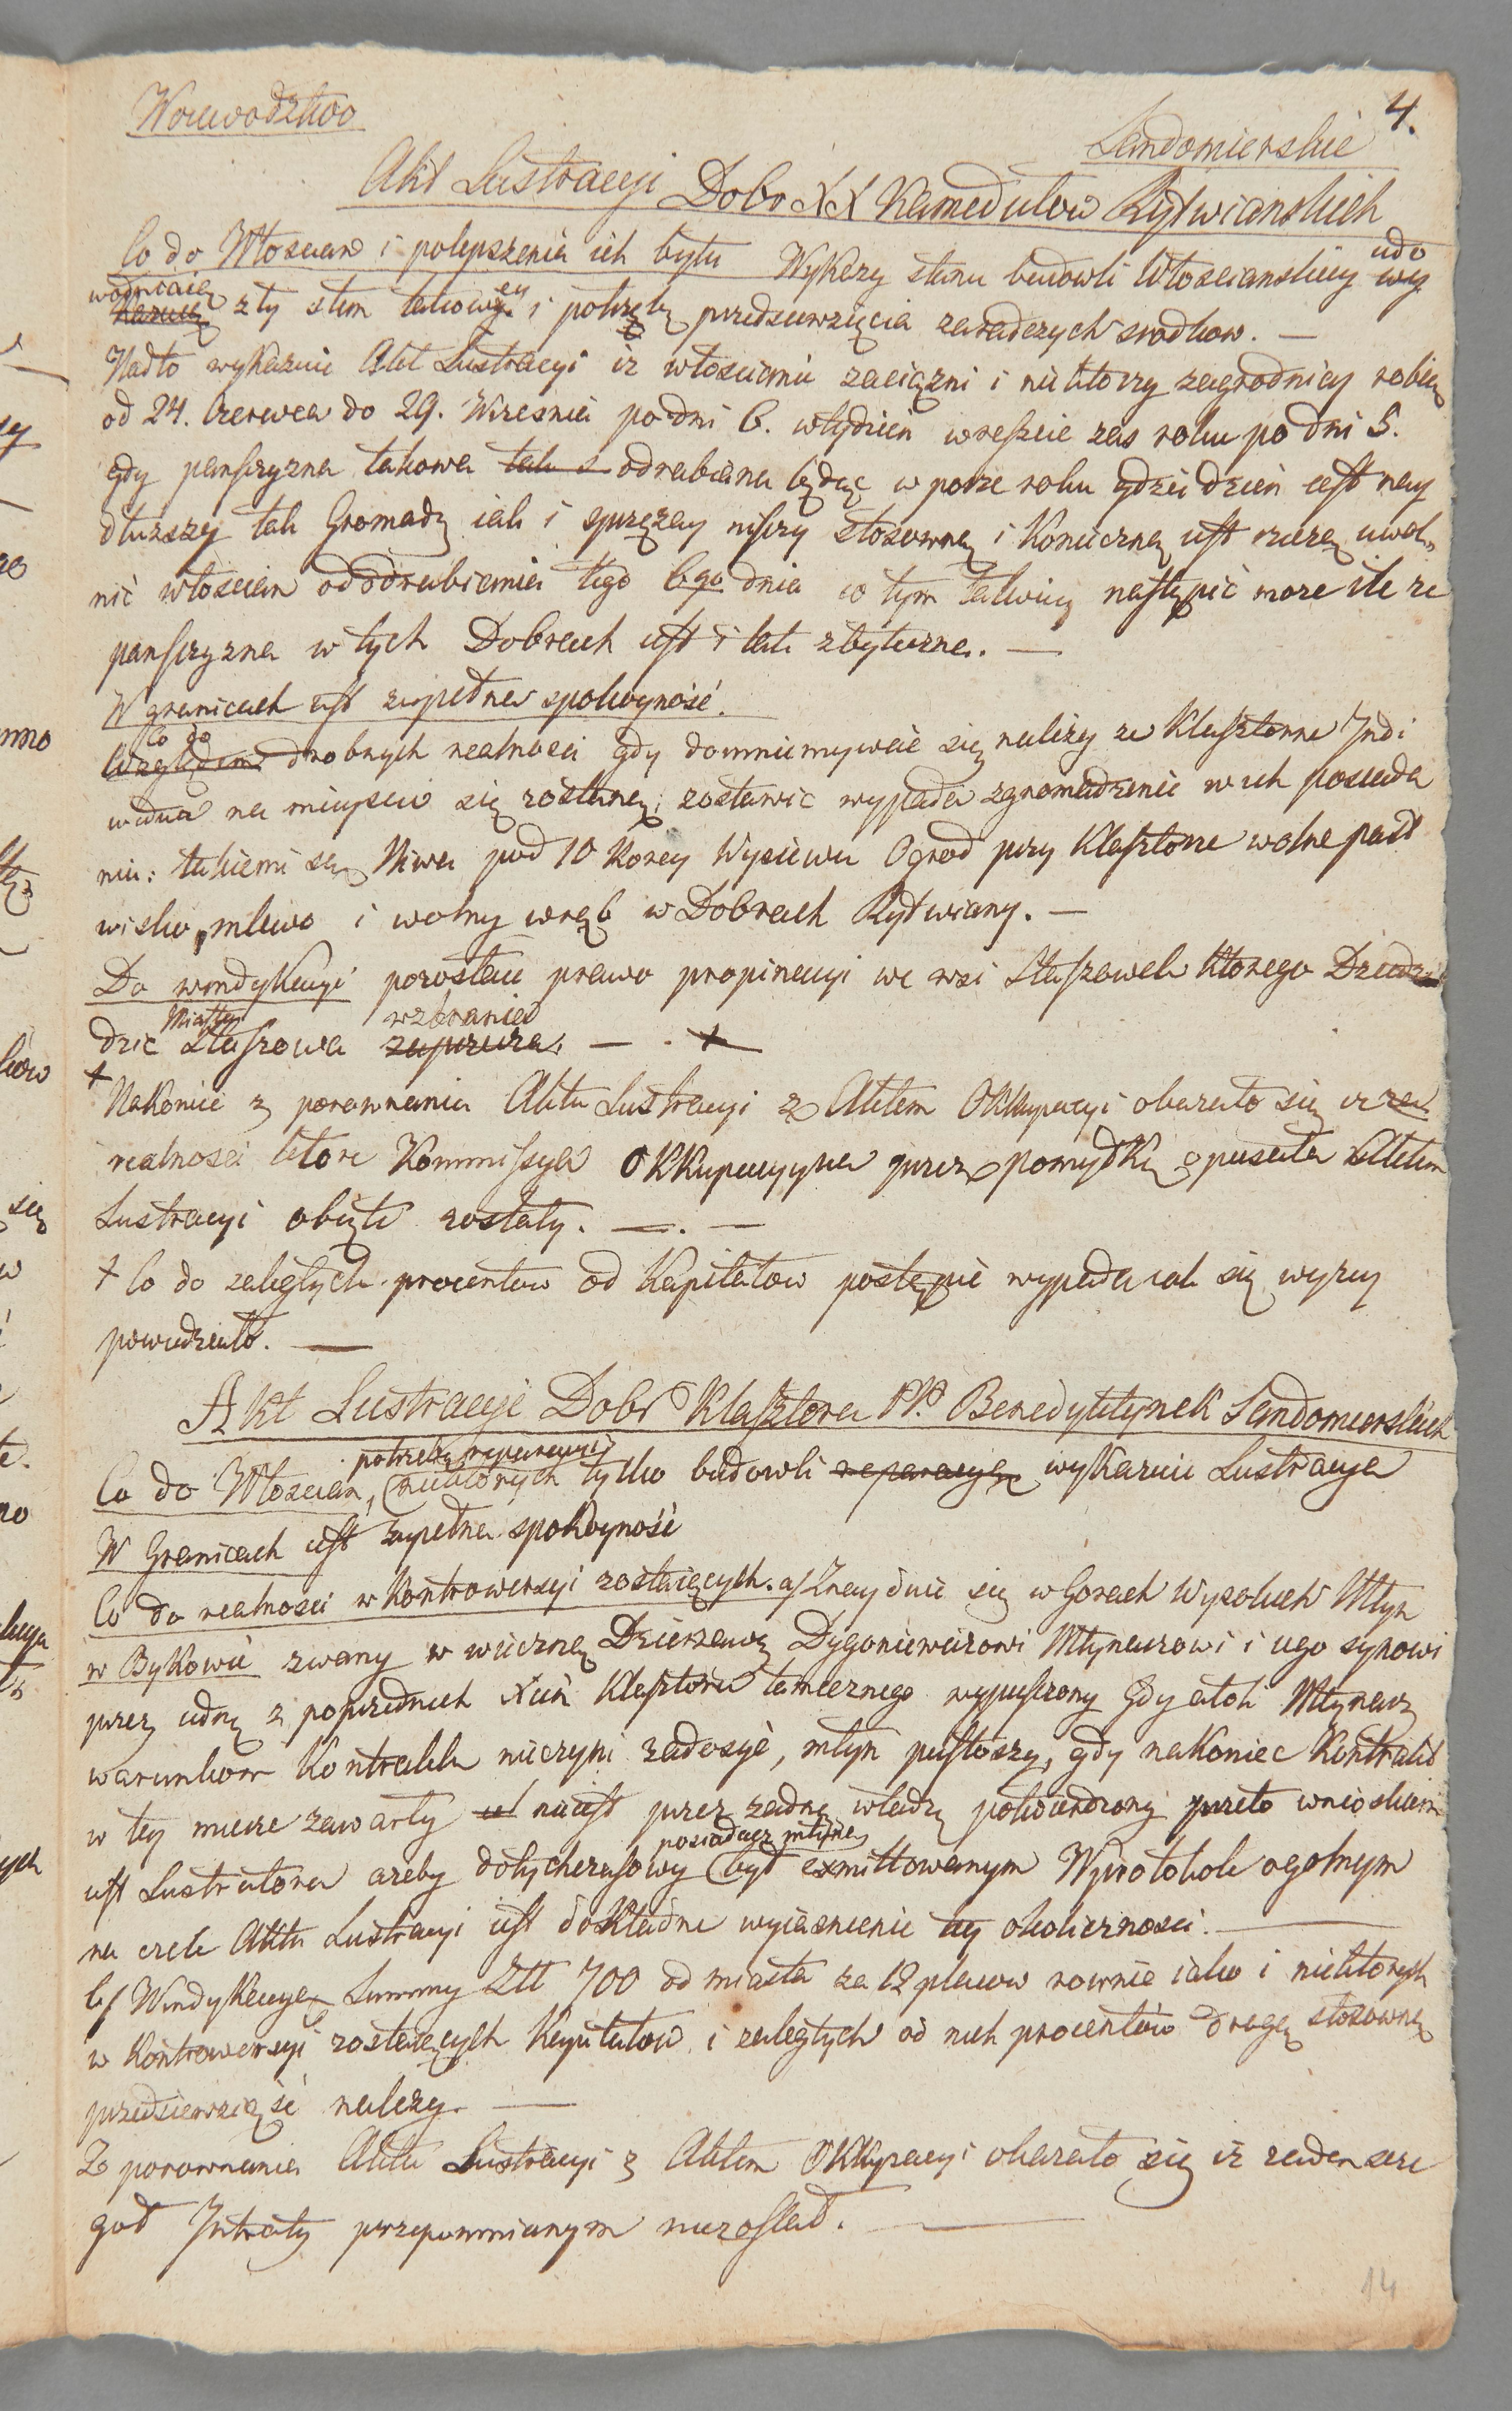 4.
Woiewodztwo
Sandomierskie
Akt Lustracyi Dobr XX Kamedułow Rytwianskich
Co do Włoscian i polepszenia ich bytu Wykazy stanu budowli Włoscianskiey udo
wodniaią zły stan takowey i potrzebę przedsięwzięcia zaradczych srodkow. —
Nadto wykazuie Akt Lustracyi iż włoscianie zaciężni i niektorzy zagrodnicy robią
od 24. Czerwca do 29. Wrzesnia po dni 6. w tydzień w reszcie zas roku po dni 5.
gdy panszczyzna takowa tak s odrabiana będąc w porze roku gdzie dzień iest nay
dłuzszy tak Gromadę iak i sprzęzay niszczy stosowną i konieczną iest rzeczą uwol„
nić włoscian od odrabiania tego 6go dnia co tym łatwiey nastąpić może ile że
panszczyzna w tych Dobrach iest i tak zbyteczna. —
W granicach iest zupełna spokoyność.
Co do
Względem drobnych realnosci gdy domniemywać się należy że Klasztorne Indi
widua na mieyscu się zostaną; zostawić wypada zgromadzenie w ich posiada
niu: takiemi są Niwa pod 10 Korcy Wysiewu Ogrod przy Klasztorze wolne past
wisko, mlewo i wolny wrąb w Dobrach Rytwiany. —
Do windykacyi pozostaie prawo propinacyi we wsi Staszowek ktorego Dzied
dzic Miasta Staszowa zaprzecza. wzbrania — . +
+ Nakoniec z porownania Aktu Lustracyi z Aktem Okkupacyi okazało się iż
realnosci ktore Kommissya Okkupacyyna przez pomyłkę opusciła Aktem
Lustracyi obięte zostały. — . —
+ Co do zaległych procentow od Kapitałow postąpić wypada iak się wyzey
powiedziało. —
Akt Lustracyi Dobr Klasztora PP. Benedyktynek Sandomierskich
Co do Włoscian, potrzebę reparacyi niektorych tylko budowli reparacyą wykazuie Lustracya
W Granicach iest zupełna spokoyność
Co do realnosci w kontrowersyi zostaiących. a/ Znayduie się w Gorach Wysokich Młyn
w Bykowie zwany w wieczną Dzierzawę Dygoniewiczowi Młynarzowi i iego synowi
przez iednę z poprzednich Xień Klasztoru tamecznego wypuszczony Gdy atoli Młynarz
warunkom Kontraktu nieczyni zadosyć, młyn pustoszy, gdy nakoniec Kontrakt
w tey mierze zawarty nieiest przez zadną władzę potwierdzony przeto wnioskiem
iest Lustratora azeby dotychczasowy posiadacz młyna był exmittowanym W protokole ogolnym
na czele Aktu Lustracyi iest dokładne wyiasnienie tey okolicznosci. —
b/ Windykacyą Summy Złł 700 od miasta za 12 placow rownie iako i niektorych
w kontrowersyi zostaiących Kapitałow i zaległych od nich procentów drogą stosowną
przedsiewziąść nalezy. —
Z porownania Aktu Lustracyi z Aktem Okkupacyi okazało się iż zaden szcze
goł Intraty przepomnianym niezostał. —
14